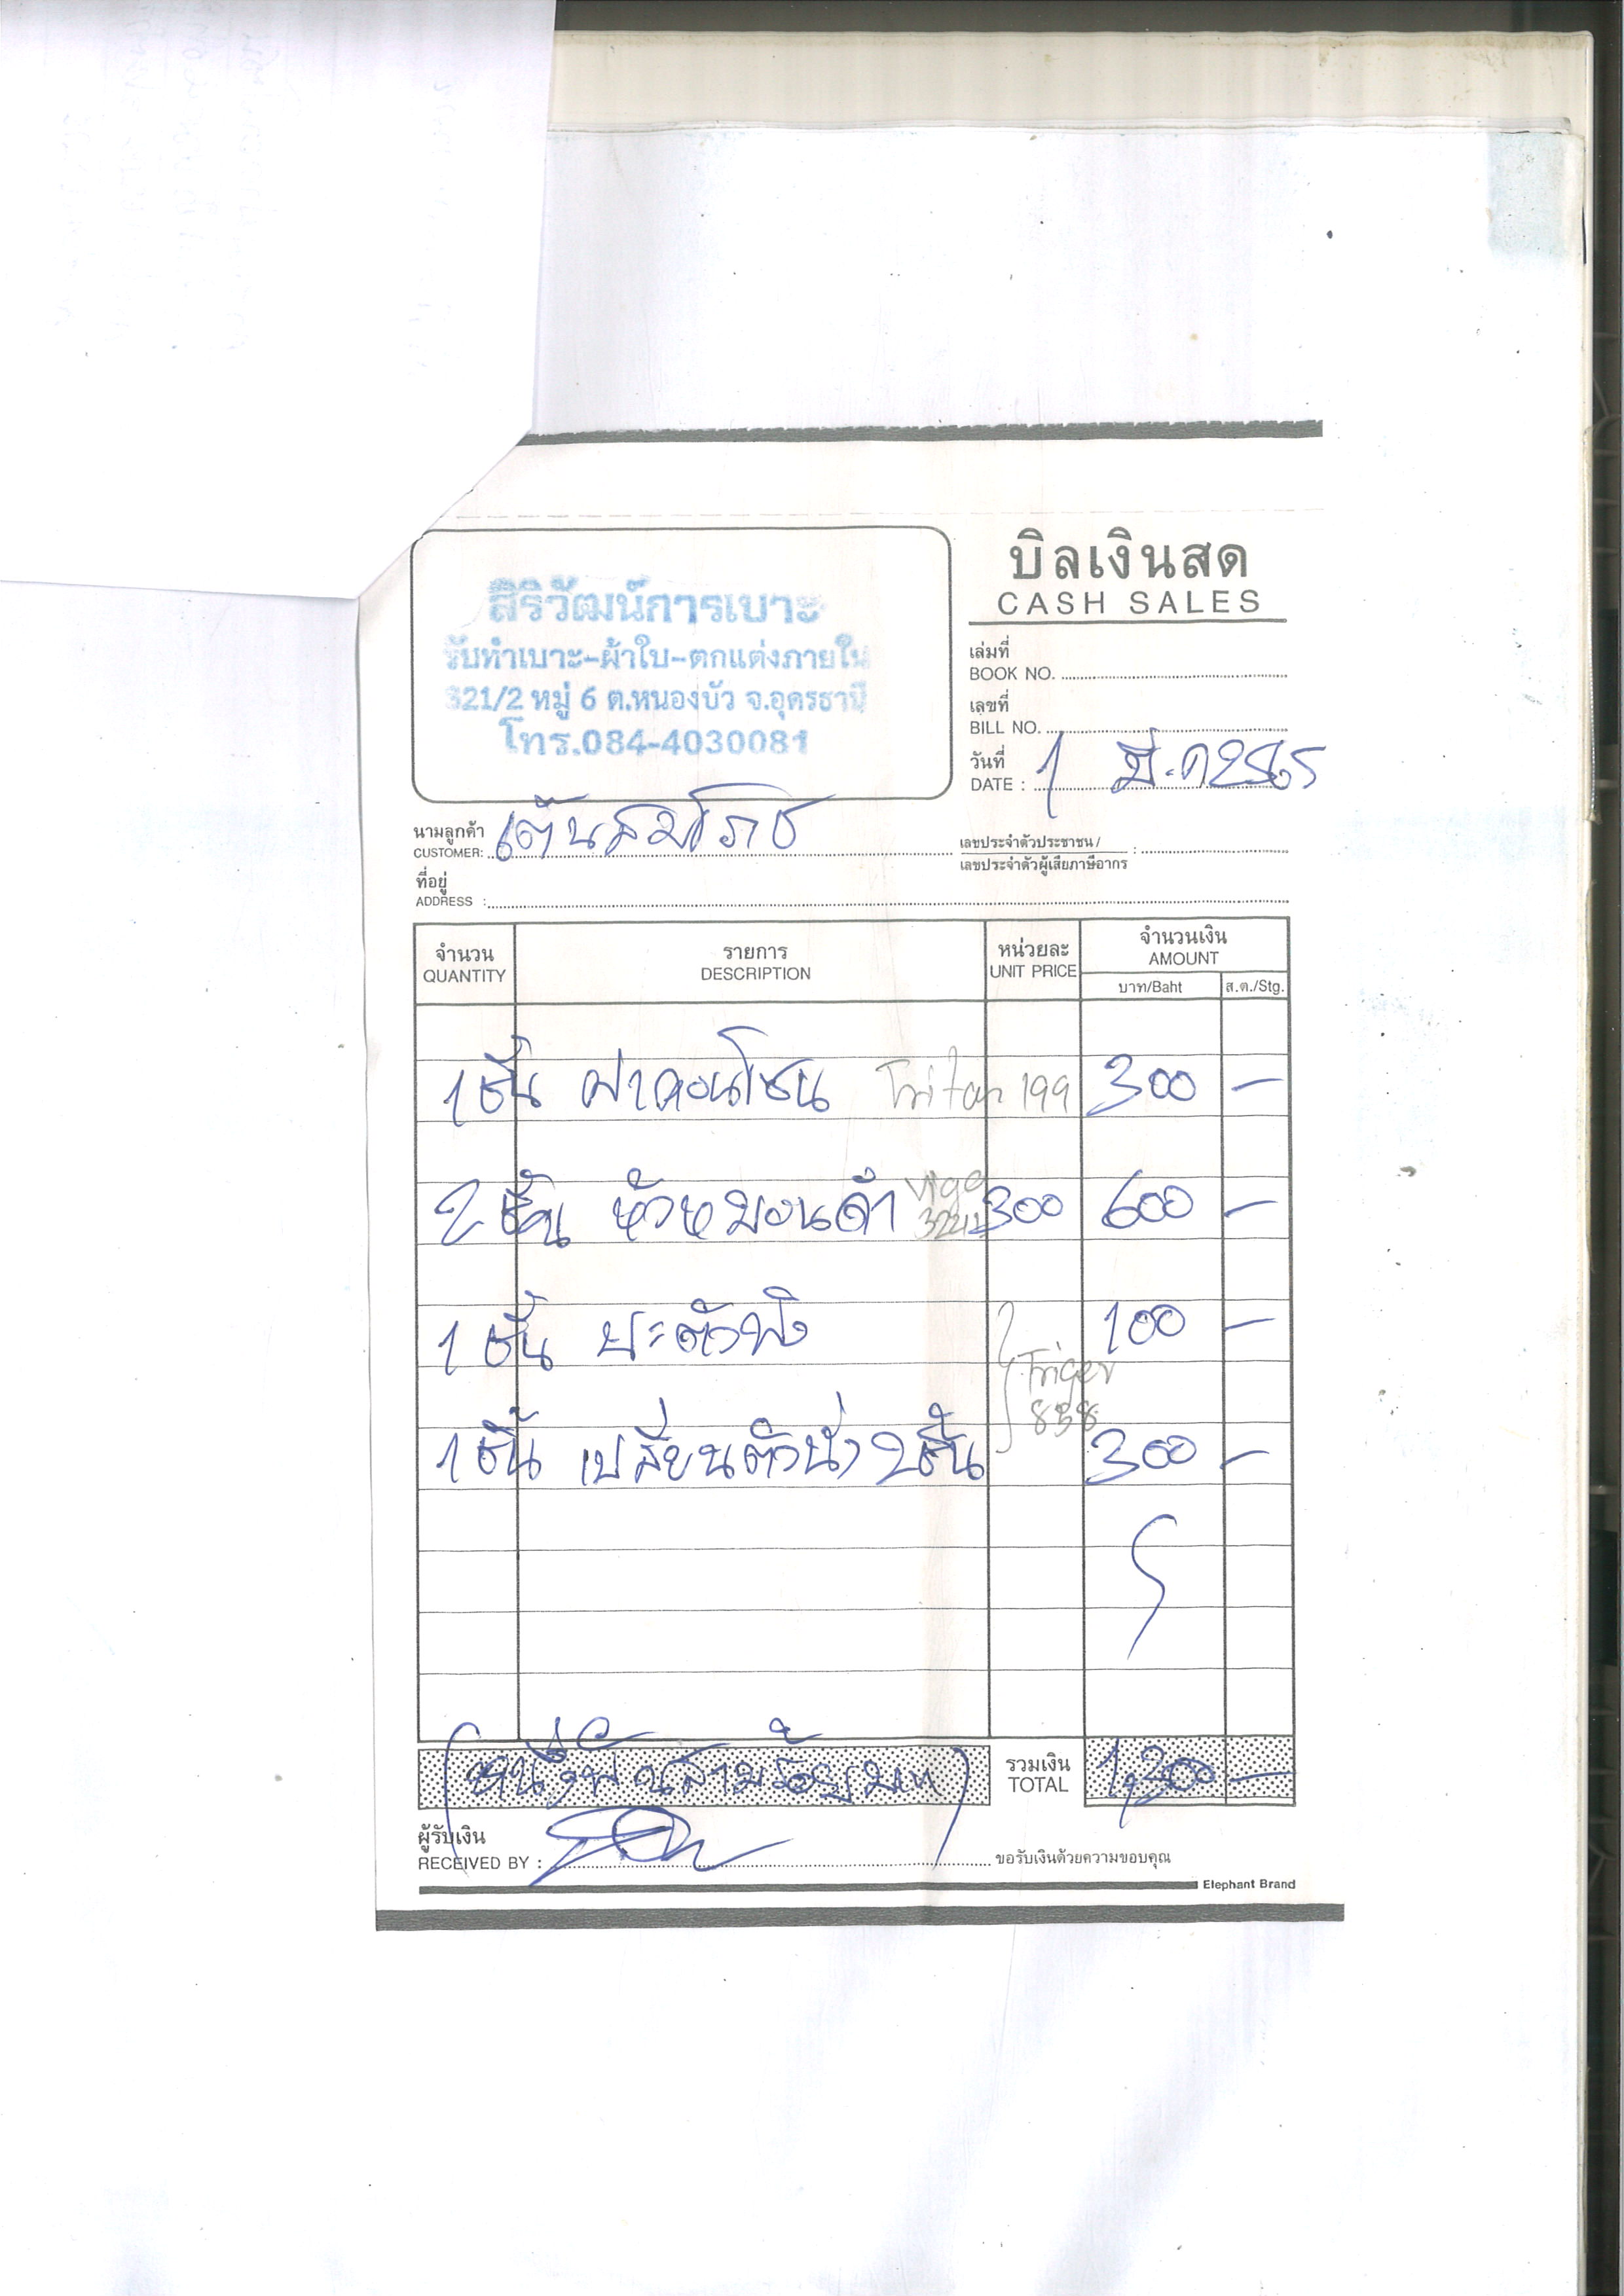 สิริวัฒน์การเบาะ
รับทำเบาะ-ผ้าใบ-ตกแต่งภายใน
321/2 หมู่ 6 ต.หนองบัว จ.อุดรธานี
โทร.084-4030081
บิลเงินสด
CASH SALES
เล่มที่
BOOK NO.
เลขที่
BILL NO.
วันที่
DATE : 1 มี.ค 2565
นามลูกค้า
CUSTOMER: เต๊นสมโภช
เลขประจำตัวประชาชน /
เลขประจำตัวผู้เสียภาษีอากร :
ที่อยู่
ADDRESS :
จำนวน
QUANTITY
รายการ
DESCRIPTION
หน่วยละ
UNIT PRICE
จำนวนเงิน
AMOUNT
บาท/Baht
ส.ต./Stg.
1 ชิ้น ฝาคอนโซน Triton 199 300 -
2 ชิ้น หัวหมอนดำ Vigo 300 600 -
1 ชิ้น ปะตัวพิง 100 -
Triger
838
1 ชิ้น เปลี่ยนตัวนั่ง 2 ชิ้น 300 -
(หนึ่งพันสามร้อยบาท)
รวมเงิน
TOTAL 1,300 -
ผู้รับเงิน
RECEIVED BY :
ขอรับเงินด้วยความขอบคุณ
Elephant Brand